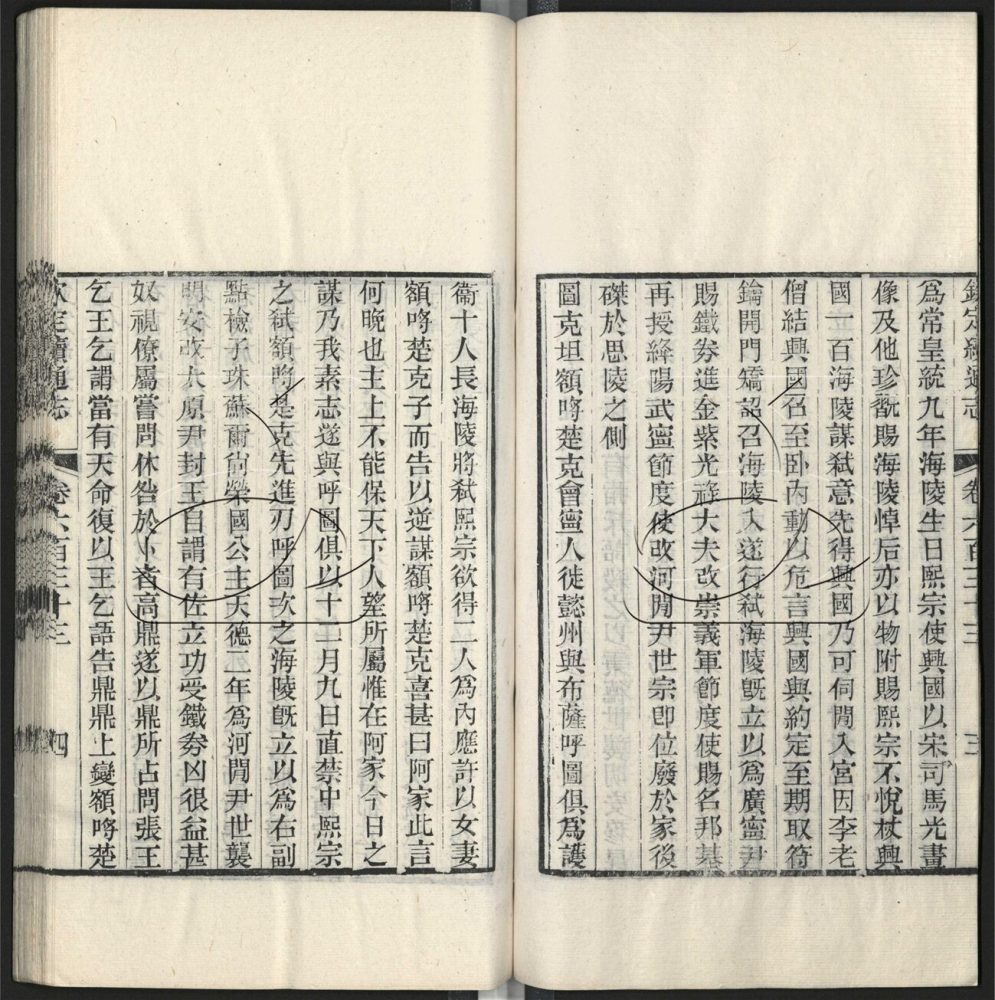 欽定續通志
卷六百三十三
三
為常皇統九年海陵生日熙宗使興國以宋司馬光畫
像及他珍翫賜海陵悼后亦以物附賜熙宗不悅杖興
國一百海陵謀弒意先得興國乃可伺閒入宮因李老
僧結興國召至臥內動以危言興國與約定至期取符
鑰開門矯詔召海陵入遂行弒海陵旣立以為廣寧尹
賜鐵券進金紫光祿大夫改崇義軍節度使賜名邦基
再授絳陽武寧節度使改河閒尹世宗卽位廢於家後
磔於思陵之側
圖克坦額哷楚克會寧人徙懿州與布薩呼圖俱為護
衛十人長海陵將弒熙宗欲得二人為內應許以女妻
額哷楚克子而告以逆謀額哷楚克喜甚曰阿家此言
何晚也主上不能保天下人望所屬惟在阿家今日之
謀乃我素志遂與呼圖俱以十二月九日直禁中熙宗
之弒額哷楚克先進刃呼圖次之海陵旣立以為右副
點檢子珠蘇爾尚榮國公主天德二年為河閒尹世襲
明安改太原尹封王自謂有佐立功受鐵券凶很益甚
奴視僚屬嘗問休咎於卜者高鼎遂以鼎所占問張王
乞王乞謂當有天命復以王乞語告鼎鼎上變額哷楚
欽定續通志
卷六百三十三
四